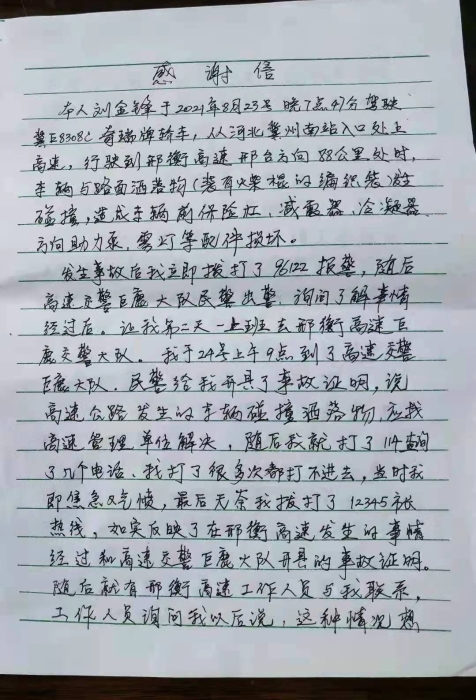 感谢信
本人刘金锋于2021年8月23号晚7点47分驾驶
冀E8308C奇瑞牌轿车，从河北冀州南站入口处上
高速，行驶到邢衡高速邢台方向88公里处时，
车辆与路面洒落物（装有火柴棍的编织袋）发生
碰撞，造成车辆前保险杠、减震器、冷凝器、
方向助力泵、雾灯等配件损坏。
发生事故后我立即拨打了96122报警，随后
高速交警巨鹿大队民警出警、询问了解事情
经过后。让我第二天一上班去邢衡高速巨
鹿交警大队。我于24号上午9点到了高速交警
巨鹿大队、民警给我开具了事故证明，说
高速公路发生的车辆碰撞洒落物，应找
高速管理单位解决，随后我就打了114查询
了几个电话、我打了很多次都打不进去，当时我
即焦急又气愤，最后无奈我拨打了12345市长
热线，如实反映了在邢衡高速发生的事情
经过和高速交警巨鹿大队开具的事故证明。
随后就有邢衡高速工作人员与我联系，
工作人员询问我以后说，这种情况想